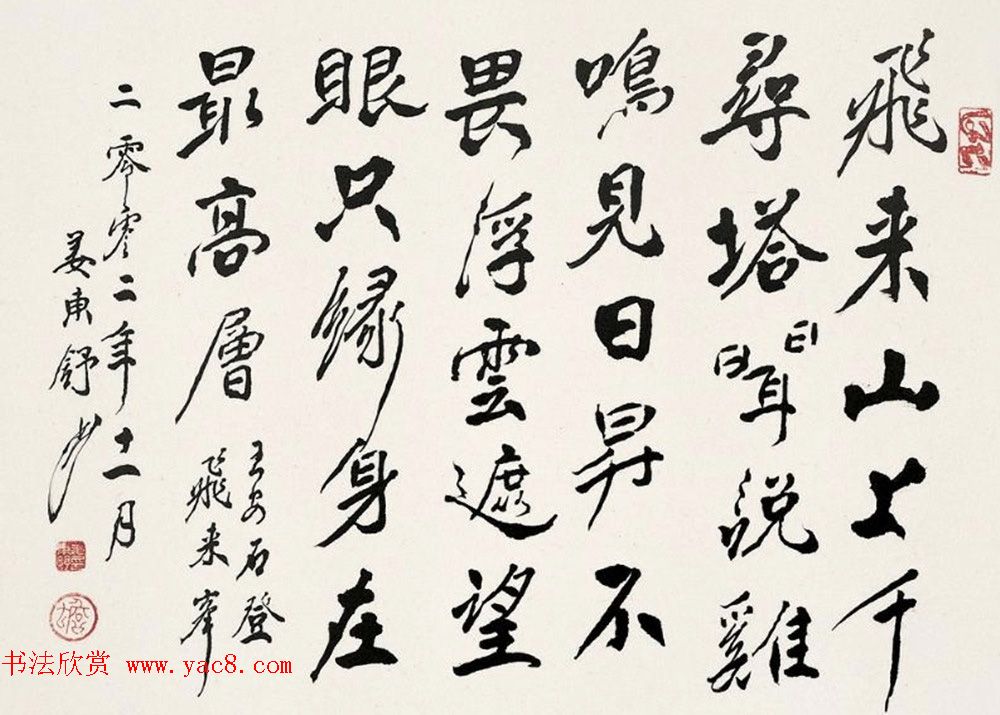 飛来山上千
尋塔聞説雞
鳴見日昇不
畏浮雲遮望
眼只緣身在
最高層
王安石登
飛来峯
二零零二年十一月
姜東舒书
书法欣赏 www.yac8.com